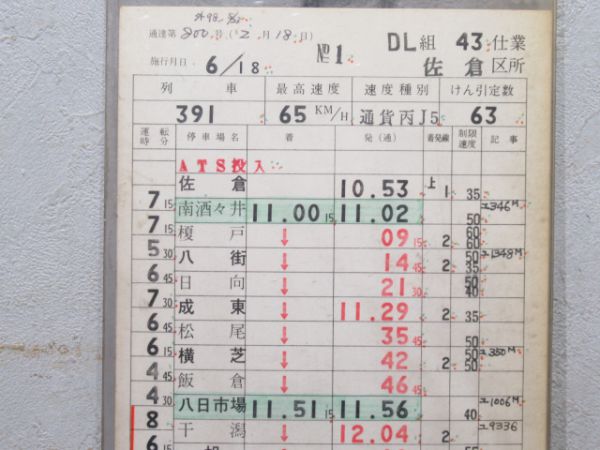 通達第 800号(2月18日)
№1 DL組 43仕業
施行月日 6/18 佐倉区所
列車 最高速度 速度種別 けん引定数
391 65 KM/H 通貨丙J5 63
運転時分 停車場名 着 発(通) 着発線 制限速度 記事
ATS投入
佐倉 10.53 上1 35
7 15 南酒々井 11.00 15 11.02
7 15 榎戸 ↓ 09 15 2 60
5 30 八街 ↓ 14 45 2 35
6 45 日向 ↓ 21 30 40
7 30 成東 ↓ 11.29 2 35
6 松尾 ↓ 35 45
6 横芝 ↓ 42 2 50
4 45 飯倉 ↓ 46 45
4 30 八日市場 11.51 15 11.56 40
8 干潟 ↓ 12.04 2
6